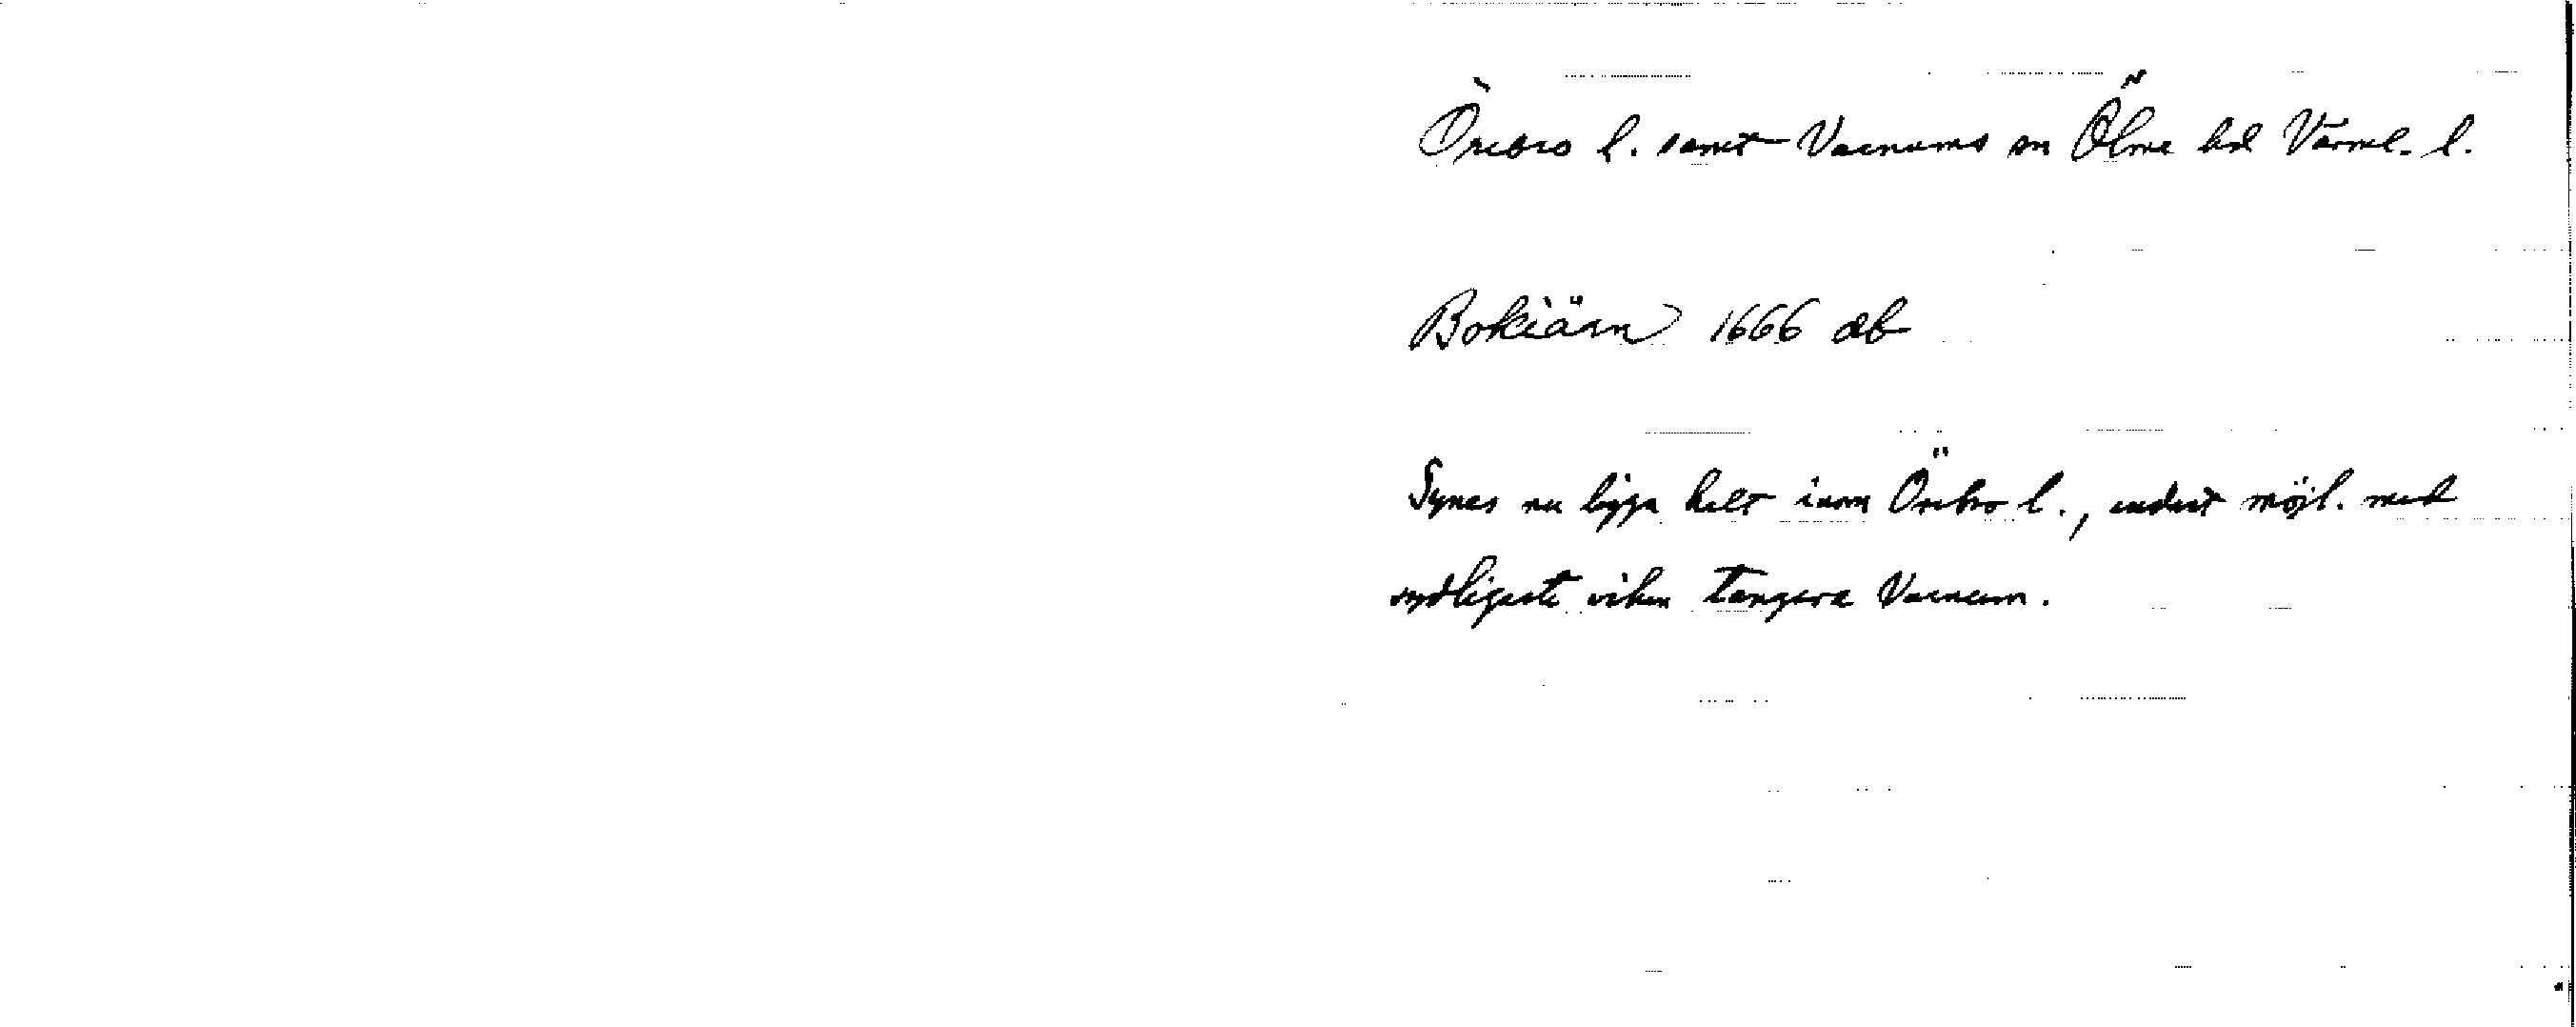 Örebro l. samt Varnums sn Ölme hd Värml. l.
Bokiärn 1666 db
Synes nu ligga helt inom Örebro l., endast möjl. med
sydligaste viken tangera Varnum.